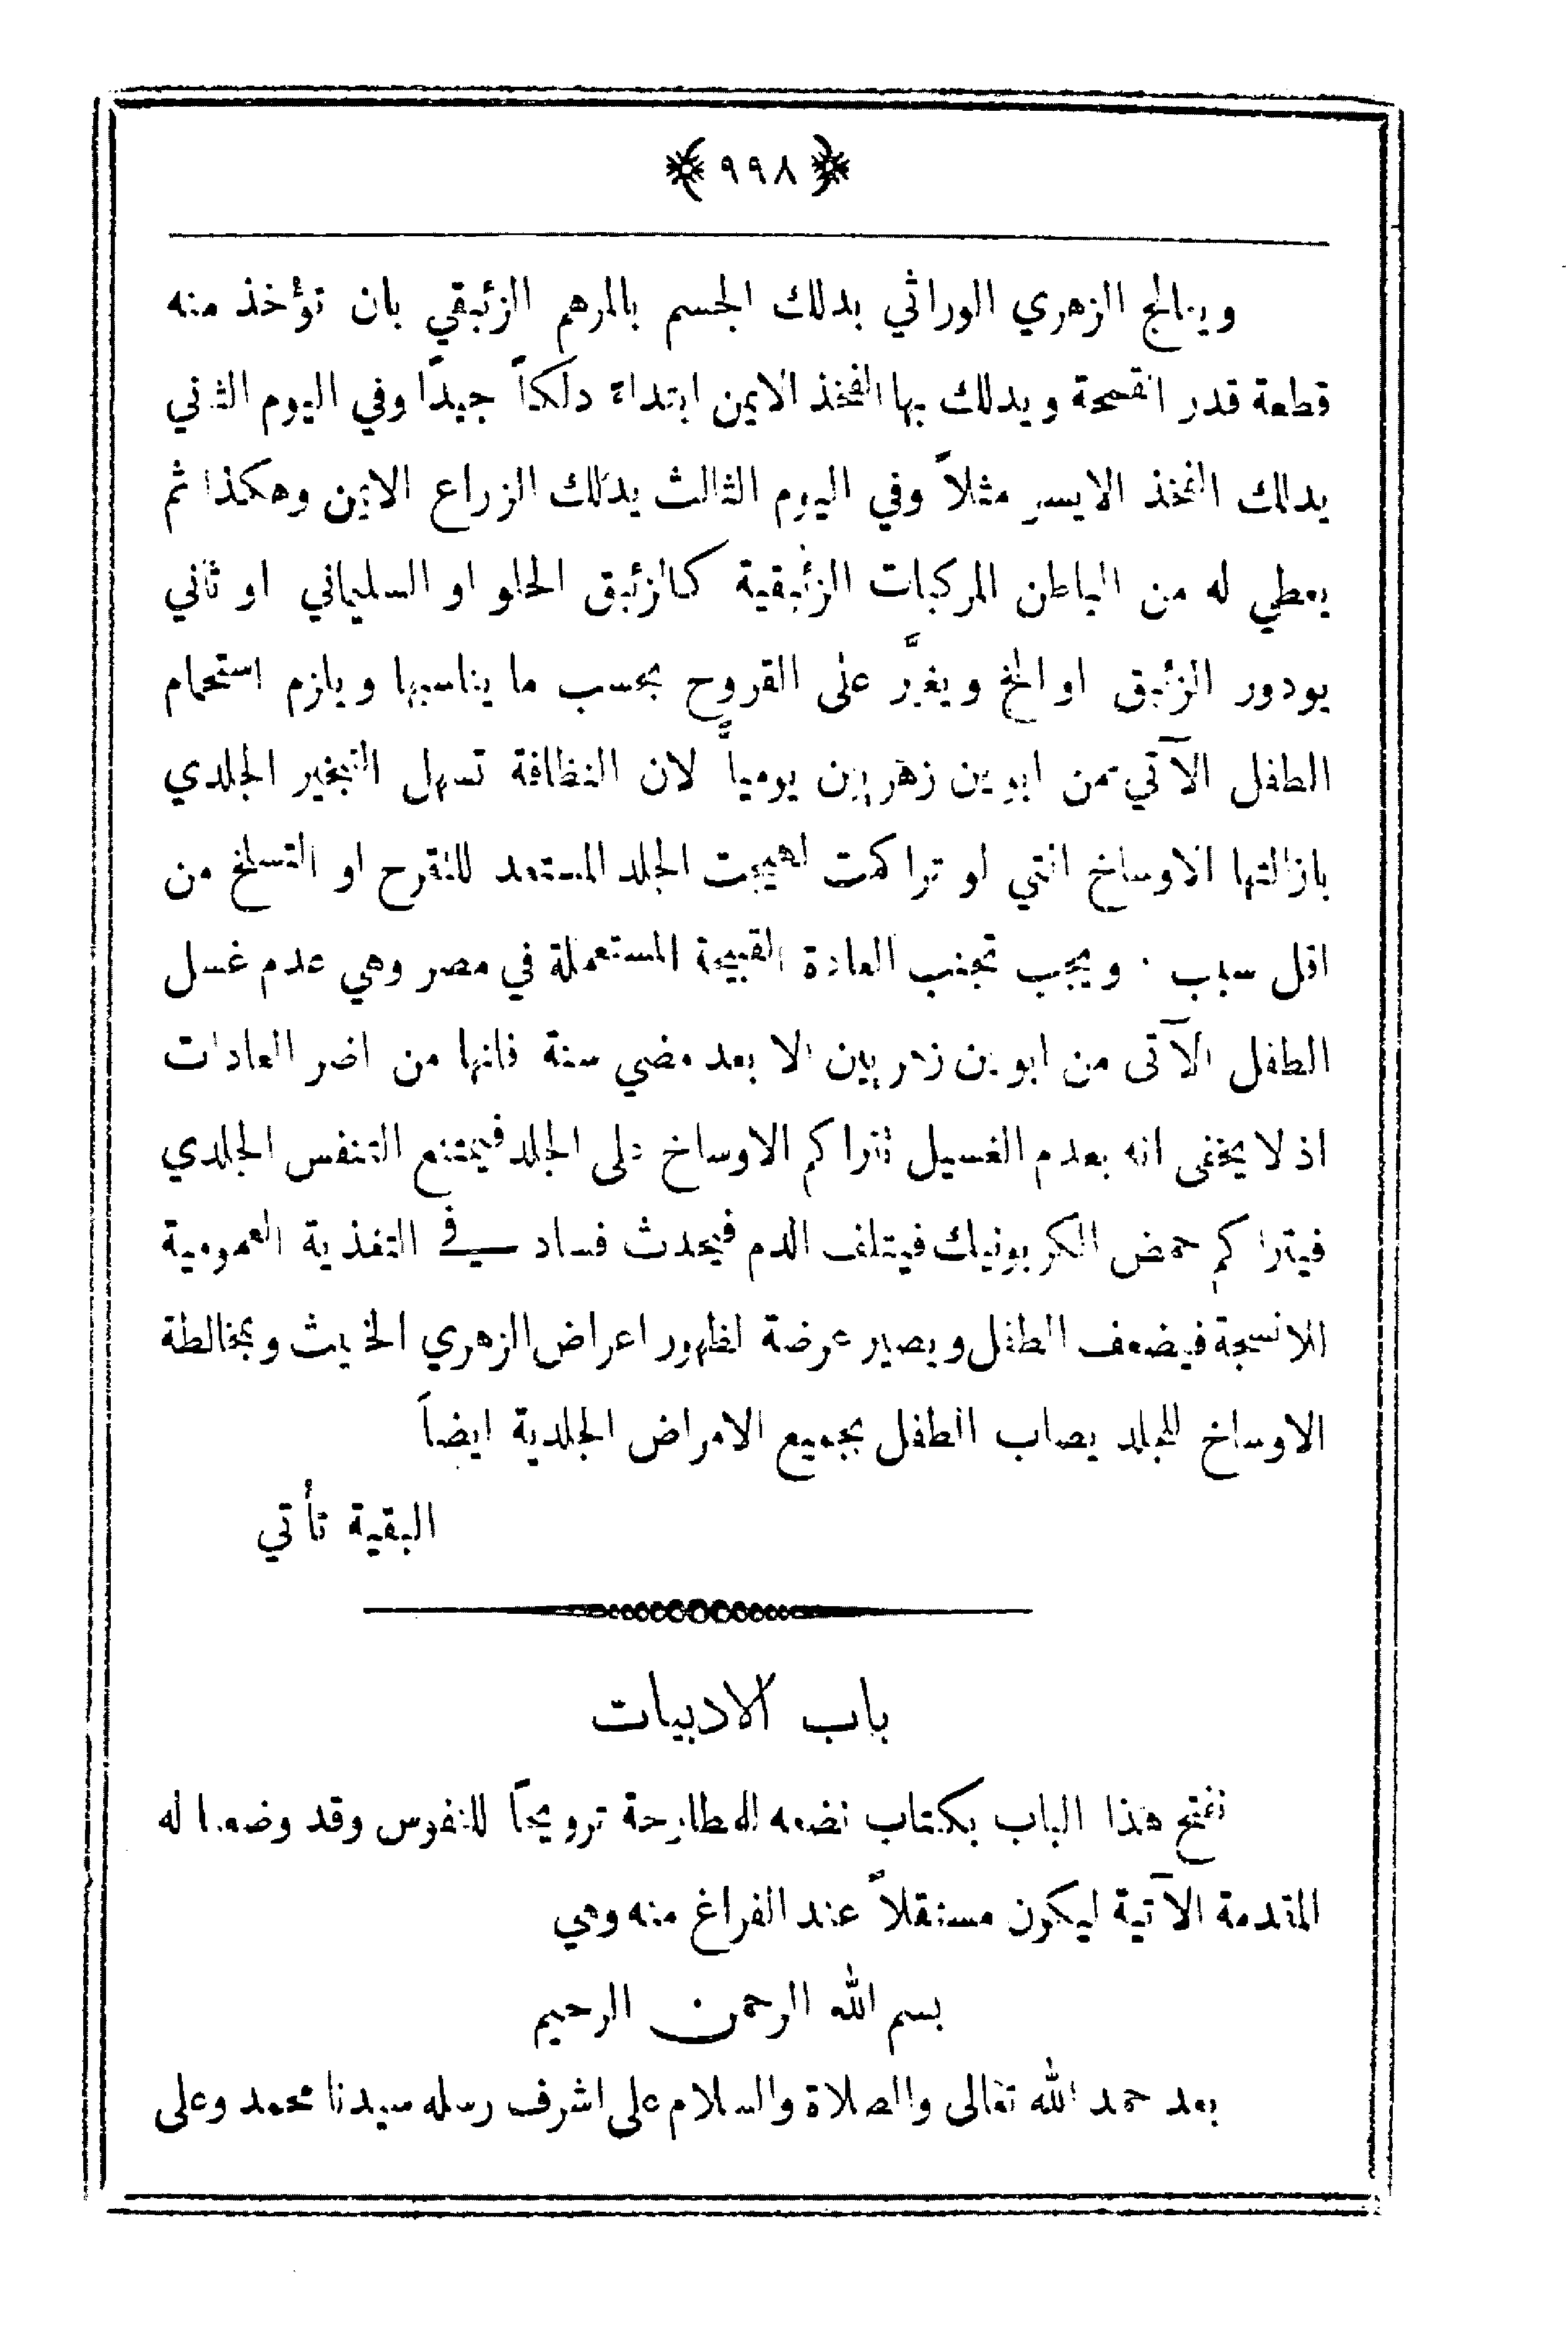 ﴿ ٩٩٨ ﴾
ويعالج الزهري الوراثي بدلك الجسم بالمرهم الزئبقي بان تؤخذ منه
قطعة قدر القمحة ويدلك بها الفخذ الايمن ابتداءً دلكاً جيداً وفي اليوم الثاني
يدلك الفخذ الايسر مثلاً وفي اليوم الثالث يدلك الزراع الايمن وهكذا ثم
يعطي له من الباطن المركبات الزئبقية كالزئبق الحلو او السليماني او ثاني
يودور الزئبق او الخ ويغيَّر على القروح بحسب ما يناسبها ويلزم استحمام
الطفل الآتي من ابوين زهريين يومياً لان النظافة تسهل التبخير الجلدي
بازالتها الاوساخ التي لو تراكمت لهيجت الجلد المستعد للتقرح او التسلخ من
اقل سبب . ويجب تجنب العادة القبيحة المستعملة في مصر وهي عدم غسل
الطفل الآتى من ابوين زهريين الا بعد مضي سنة فانها من اضر العادات
اذ لا يخفى انه بعدم الغسيل تتراكم الاوساخ على الجلد فيمتنع التنفس الجلدي
فيتراكم حمض الكربونيك فيتلف الدم فيحدث فساد في التغذية العمومية
للانسجة فيضعف الطفل ويصير عرضة لظهور اعراض الزهري الخبيث وبمخالطة
الاوساخ للجلد يصاب الطفل بجميع الامراض الجلدية ايضاً
البقية تأتي
باب الادبيات
نفتح هذا الباب بكتاب نضعه للمطارحة ترويحاً للنفوس وقد وضعنا له
المقدمة الآتية ليكون مستقلاً عند الفراغ منه وهي
بسم الله الرحمن الرحيم
بعد حمد الله تعالى والصلاة والسلام على اشرف رسله سيدنا محمد وعلى